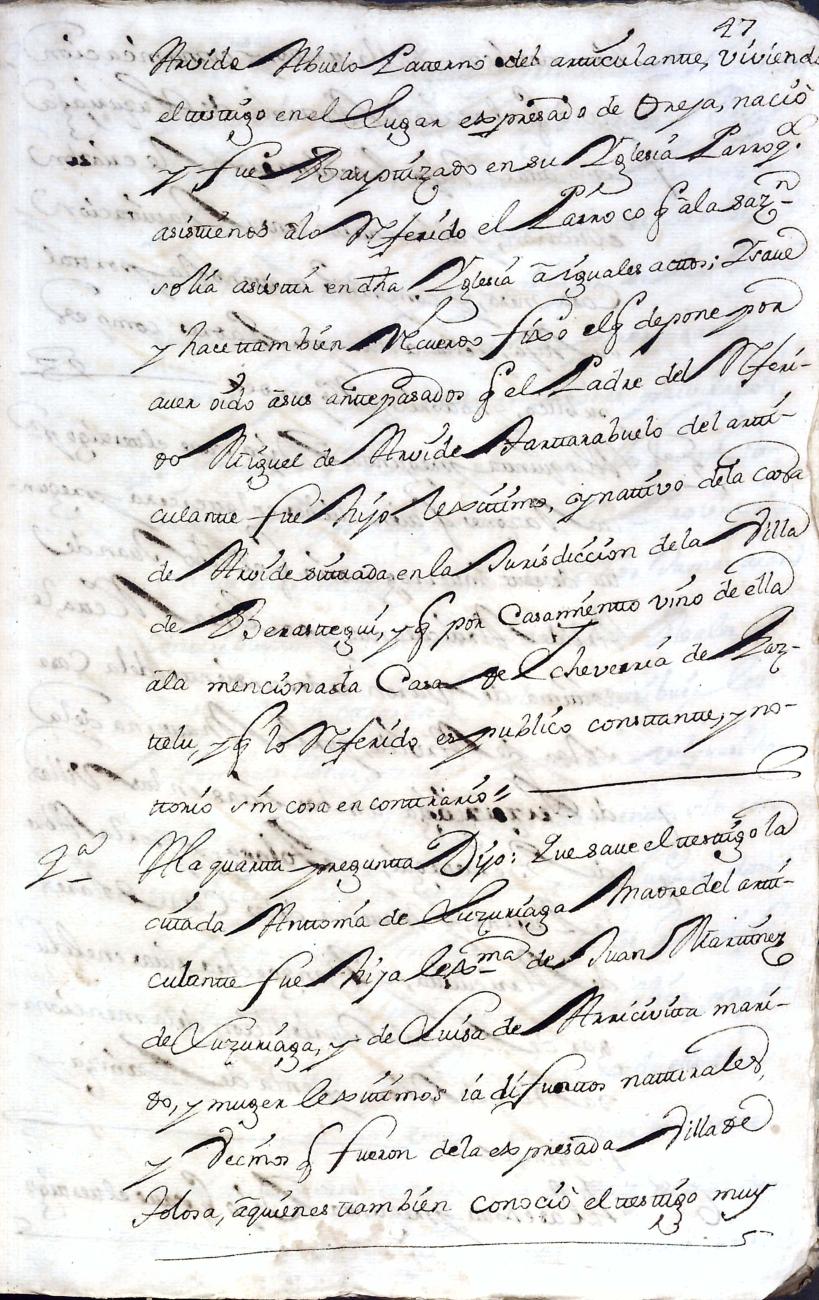 47
Arvide Abuelo Paterno del articulante, viviendo
el testigo en el Lugar expresado de Oreja, naciò
y fue Bauptizado en su Yglesia Parroq.l
asistiendo alo Referido el Parroco q̃ ala sazn
solia asistir en dħa Yglesia à iguales actos; Y save
y hace tambien Recuerdo fixo el q̃ depone por
aver oìdo àsus antepasados q̃ el Padre del Referi-
do Miguel de Arvide Tartarabuelo del arti-
culante fue hijo lexitimo, y nattivo dela casa
de Arvide sittuada, en la Jurisdiccion de la Villa
de Berastegui, y q̃ por Casamiento vino de ella
àla mencionada Casa de Echeverria de Laz-
telu, y q̃ lo Referido es publico constante, y no-
torio sin cosa en contrario =
4ª A la quarta pregunta Dijo: Que save el testigo la
citada Antonia de Luzuriaga Madre del arti-
culante fue hija lexma de Juan Martinez
de Luzuriaga, y de Luisa de Arricivita mari-
do, y muger lexitimos ià difuntos naturales,
y Vecinos q̃ fueron dela expresada Villa de
Tolosa, àquienes tambien conociò el testigo muy